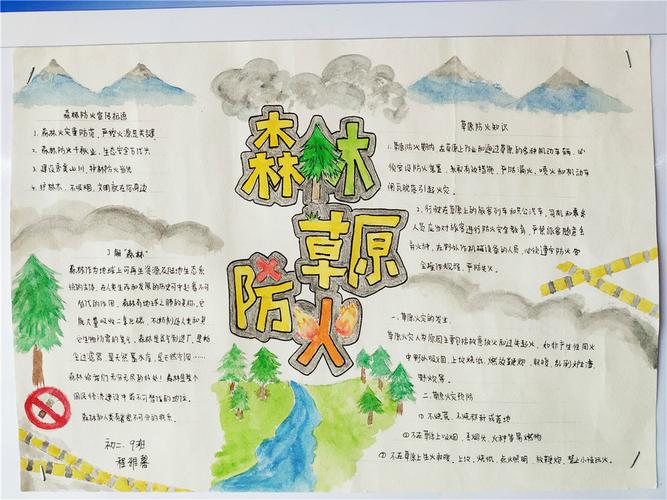 森林防火宣传标语
1. 森林火灾重防范，严控火源是关键
2. 森林防火千秋业，生态安全万代兴
3. 建设秀美山川，护林防火当先
4. 护林木，不吸烟，文明就在你身边
了解“森林”
森林作为地球上可再生资源及陆地生态系
统的主体，在人类生存和发展的历史中起着不可
替代的作用，森林有地球之肺的美称，它
能大量吸收二氧化碳，不断制造人类和其
它生物所需的氧气，森林是蓝色制造厂，是
空气过滤器，是天然蓄水库，是天然空调……
森林给我们无穷无尽的好处！森林是整个
国民经济建设中有不可替代的地位，
森林和人类有着密不可分的联系。
初二.9班
程雅馨
森林
草原
防火
草原防火知识
1. 草原防火期内，在草原上作业和通过草原的各种机动车辆，必
须安设防火装置，采取有效措施，严防漏火、喷火和机动车
闸瓦脱落引起火灾。
2. 行驶在草原上的旅客列车和公共汽车，司机和乘务
人员应当对旅客进行防火安全教育，严禁旅客随意丢
弃火种，在野外作机械设备的人员，必须遵守防火安
全操作规程，严防失火。
一. 草原火灾的发生
草原火灾人为原因主要包括故意放火和过失起火，如非生产性用火
中野外吸烟、上坟烧纸、燃放鞭炮、取暖、私刨炉渣、
野炊等。
二. 草原火灾预防
① 不烧荒，不烧秸秆或茬地
② 不在草原上吸烟、丢烟头、火种等易燃物
③ 不在草原上生火取暖、上坟、烧纸、点火照明、放鞭炮，禁止小孩玩火。